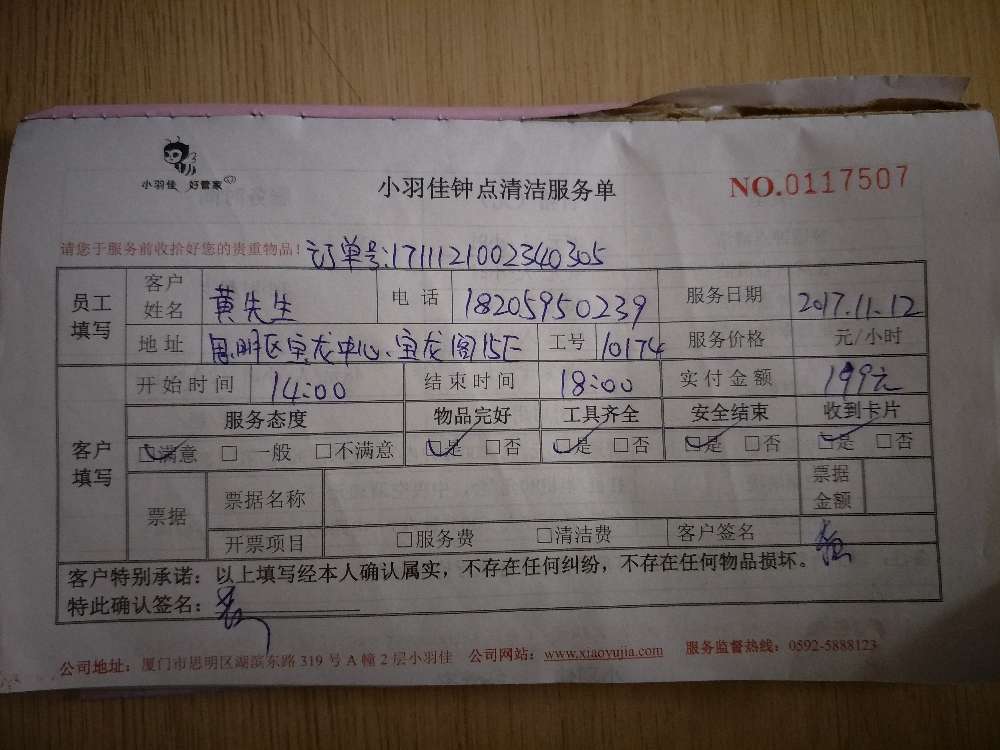 小羽佳 好管家
小羽佳钟点清洁服务单
NO.0117507
请您于服务前收拾好您的贵重物品！ 订单号:1711121002340305
员工填写 客户姓名 黄先生 电话 18205950239 服务日期 2017.11.12
地址 思明区宝龙中心、宝龙阁15E 工号 10174 服务价格 元/小时
客户填写 开始时间 14:00 结束时间 18:00 实付金额 199元
服务态度 物品完好 工具齐全 安全结束 收到卡片
☑满意 □ 一般 □不满意 ☑是 □否 ☑是 □否 ☑是 □否 ☑是 □否
票据 票据名称 票据金额
开票项目 □服务费 □清洁费 客户签名
客户特别承诺：以上填写经本人确认属实，不存在任何纠纷，不存在任何物品损坏。
特此确认签名：
公司地址：厦门市思明区湖滨东路 319 号 A 幢 2 层小羽佳 公司网站：www.xiaoyujia.com 服务监督热线：0592-5888123